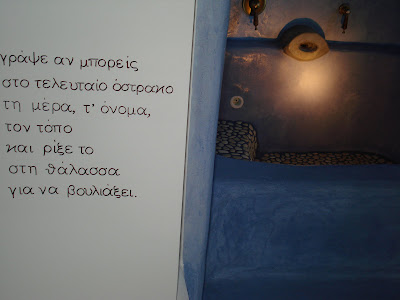 γράψε αν μπορείς
στο τελευταίο όστρακο
τη μέρα, τ' όνομα,
τον τόπο
και ρίξε το
στη θάλασσα
για να βουλιάξει.